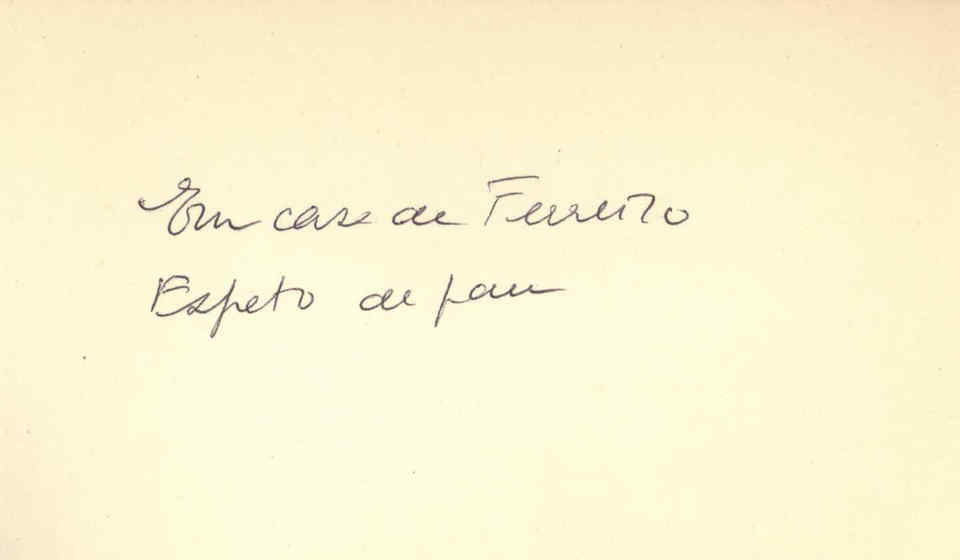 Em casa de Ferreiro
Espeto de pau